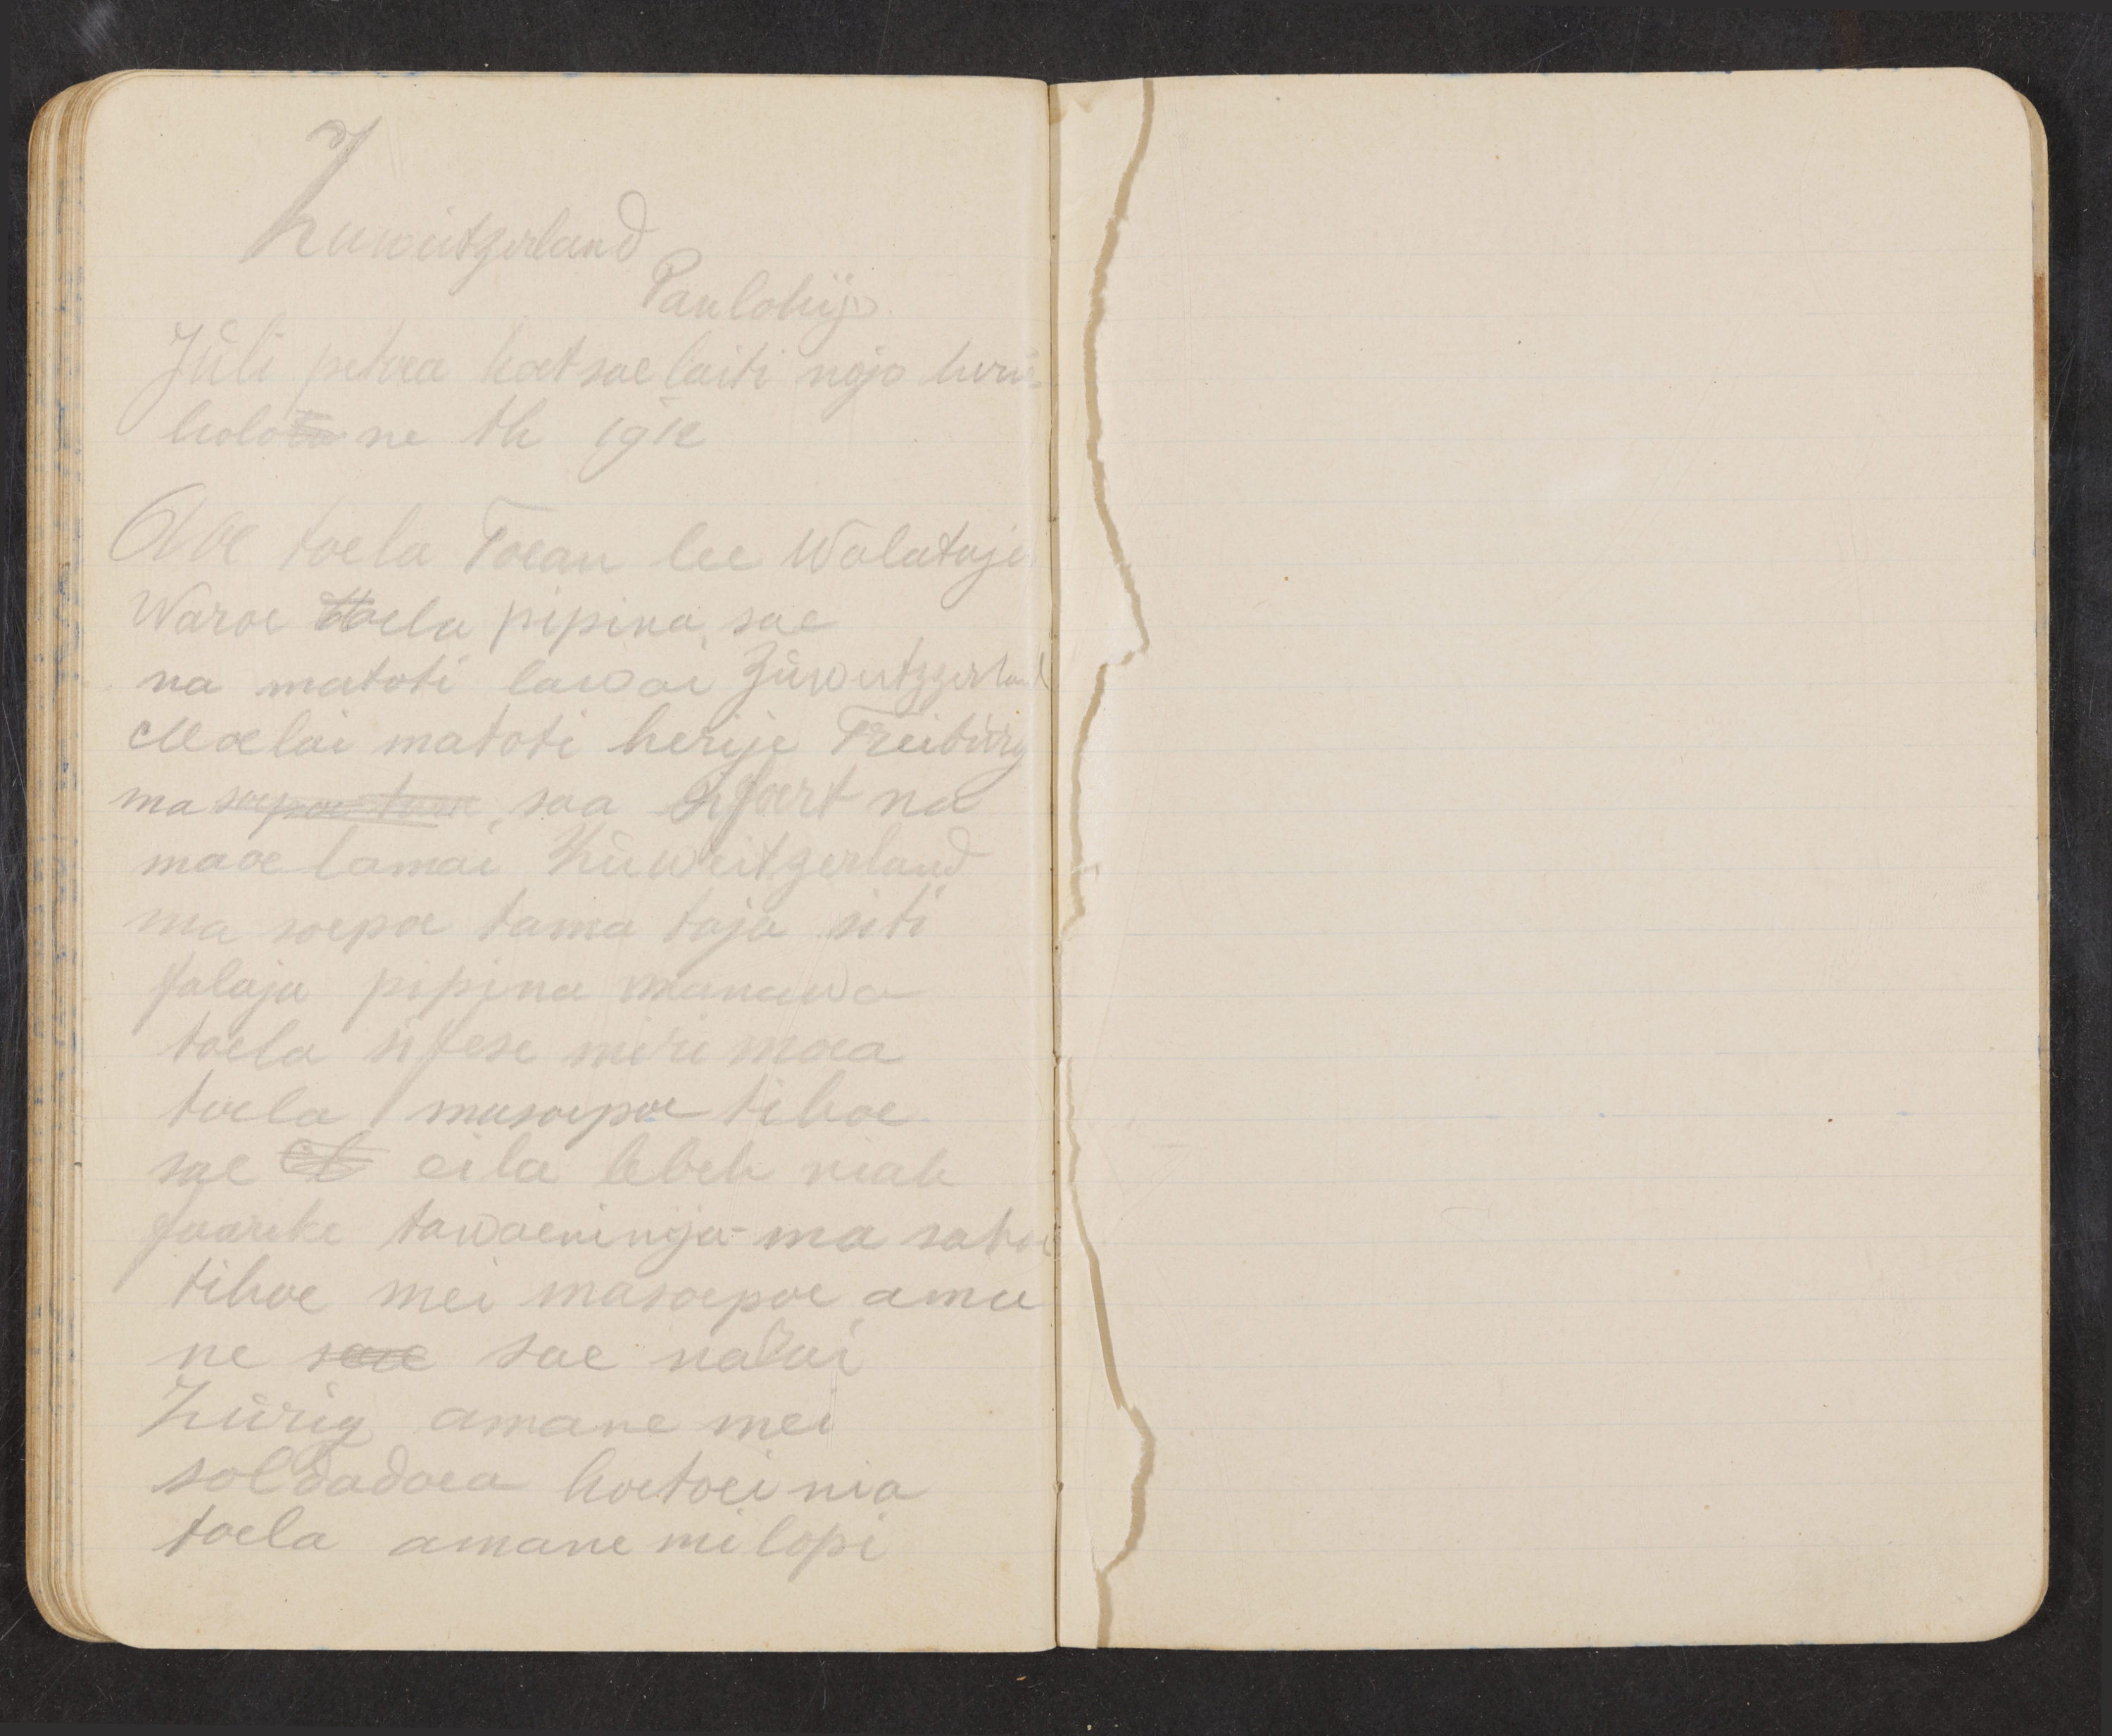 Zuweitzerland
Paulohij
Jŭli petoea hoetsae laiti nojo
holo ne th 1912
Aoe toela Toean lee Wolataji
Waroe toela pipina sae
na matoti lawai Zŭweitzzerland
Moelai matoti herije Freibŭrg
ma saa na
maoe lamai Zŭweitzerland
ma soepoe tama taja siti
falaja pipina manawa
toela si fese miri moea
toela masoepoe tihoe
sae eila lebeh riah
faarike tawaeninja ma
tihoe mei masoepoe ama
ne sae nalai
Zŭrig amane mei
soldadoea hoetoei nia
toela amane mi lopi